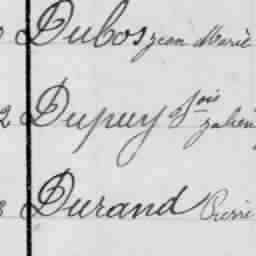 Dubos Jean Marie
2 Dupuy Jois
Durand Pierre